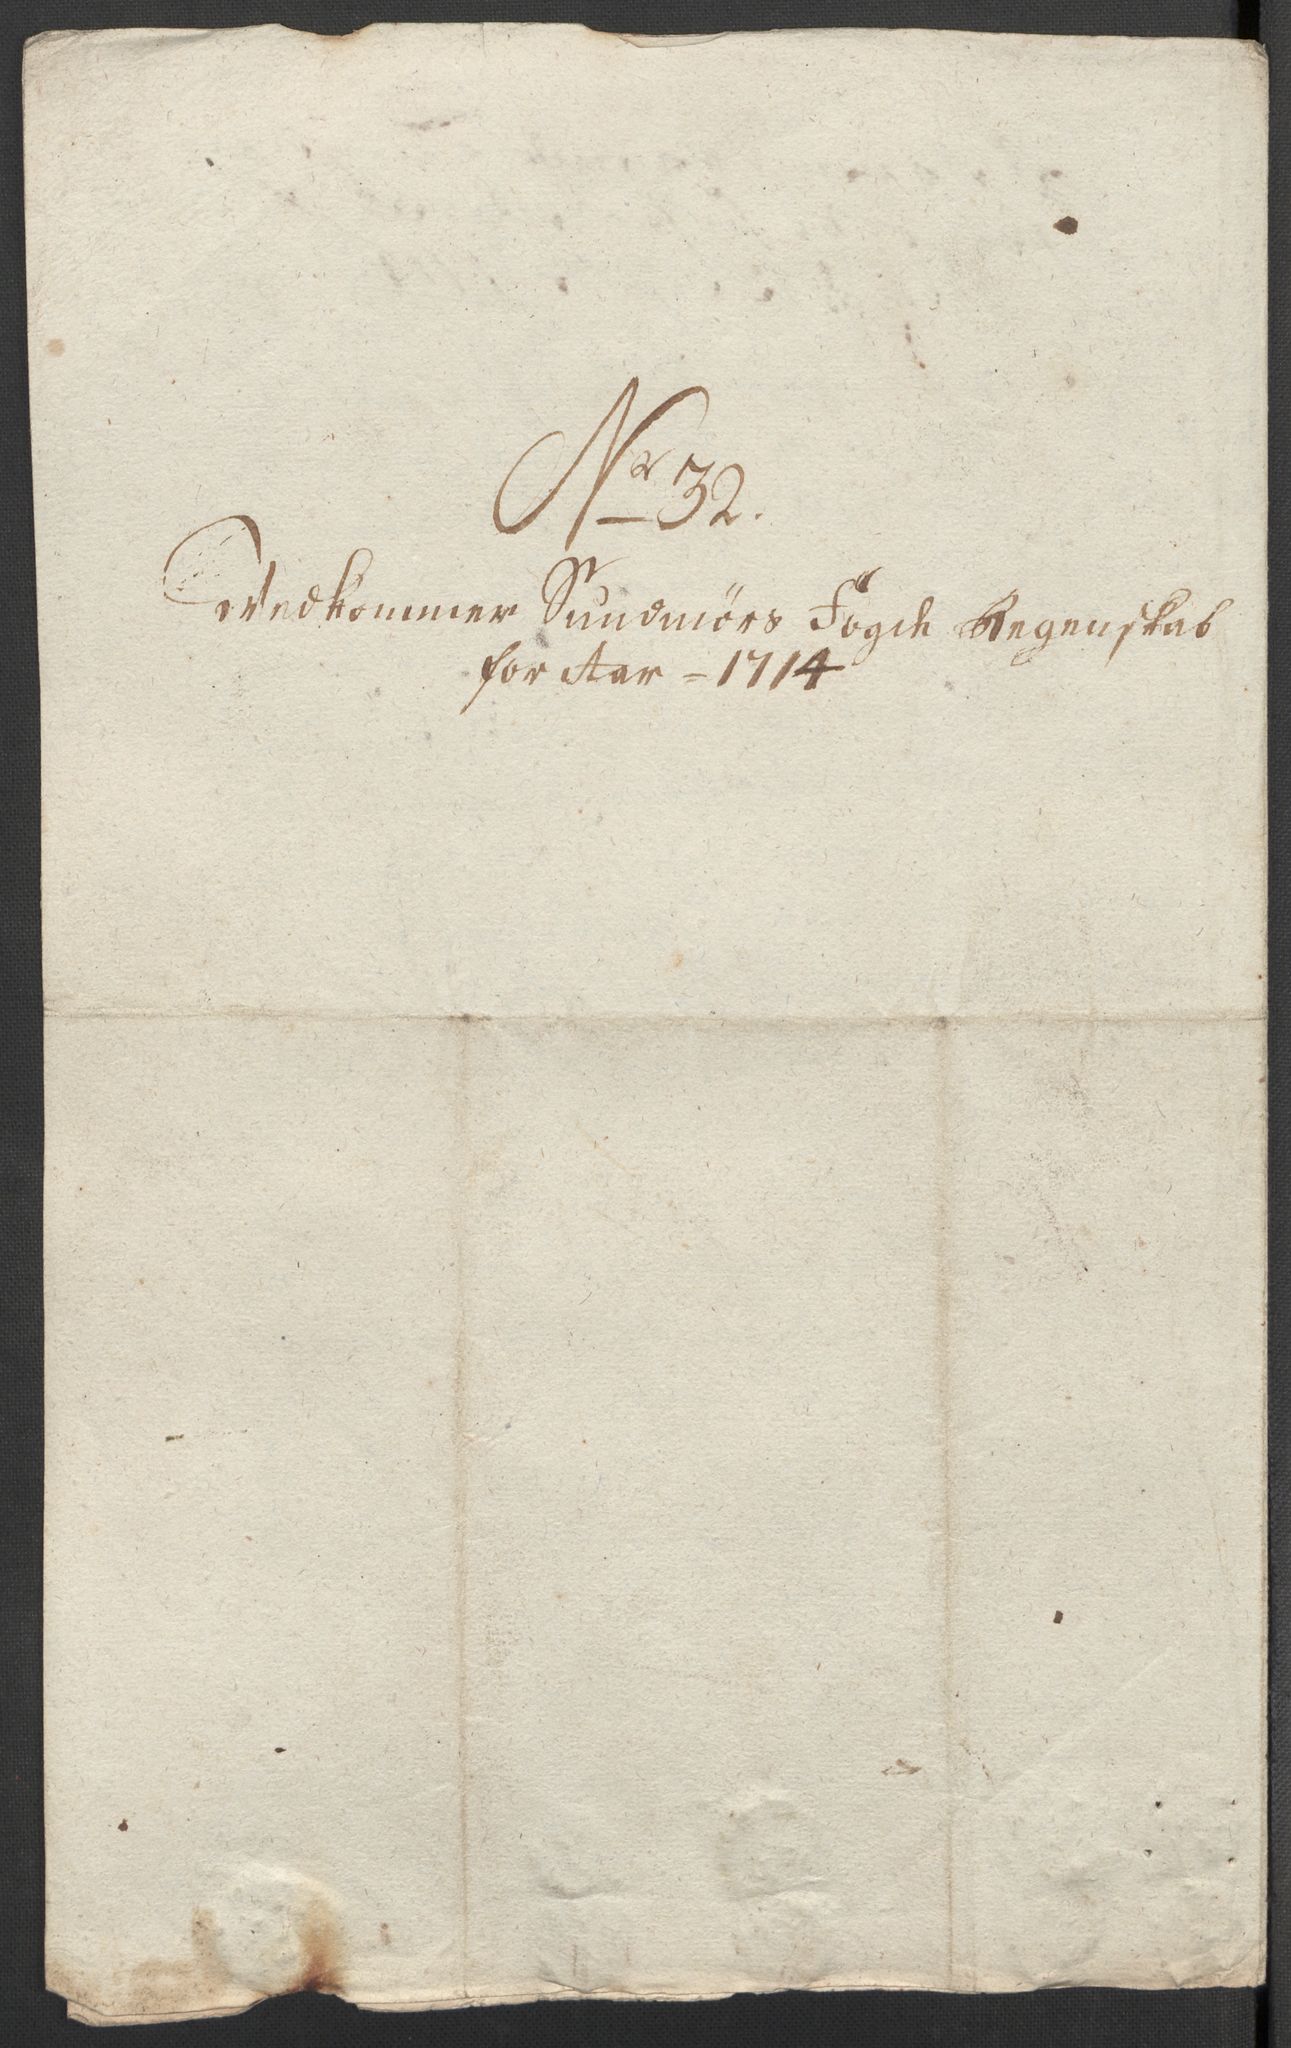 No 32.
Vedkommer Sundmörs Fogde Regenskab
for Aar = 1714